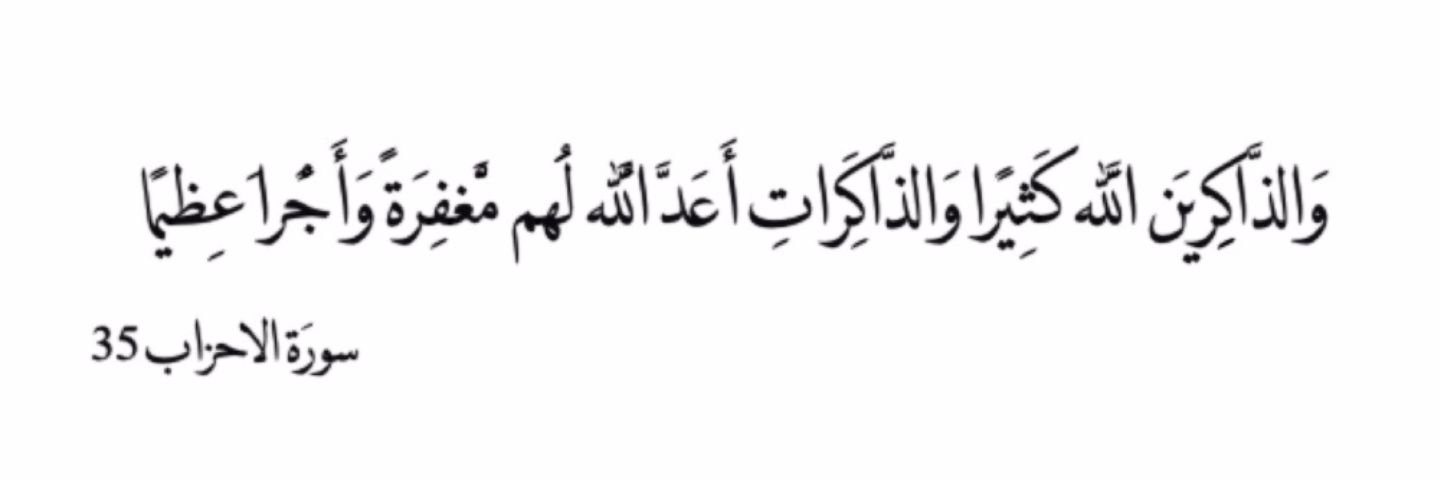 وَالذَّاكِرِيَن اللَّه كَثِيًرا وَالذَّاَكِرَاتِ أَعَدَّ اللَّه لُهم مَّغفِرَةً وَأَجُراَ عِظيمًا
سورَة الاحزاب 35